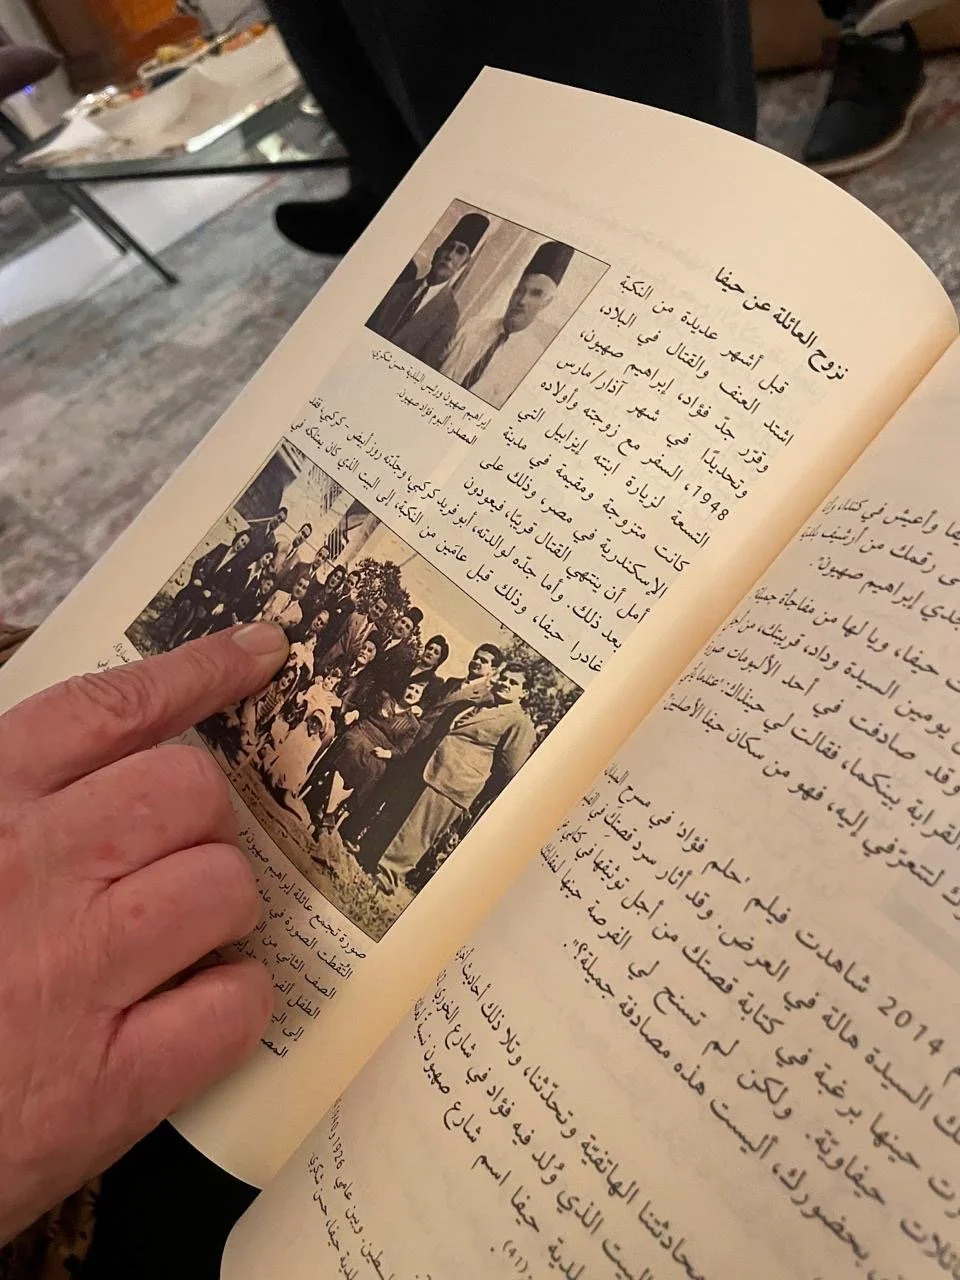 نزوح العائلة عن حيفا
قبل أشهر عديدة من النكبة
اشتد العنف والقتال في البلاد،
وقرّر جدّ فؤاد، إبراهيم صهيون،
وتحديدًا في شهر آذار/مارس
1948، السفر مع زوجته وأولاده
التسعة لزيارة ابنته إيزابيل التي
كانت متزوجة ومقيمة في مدينة
الإسكندرية في مصر، وذلك على
أمل أن ينتهي القتال قريبًا، فيعودون
بعد ذلك. وأما جدّه لوالدته، أبو فريد كركبي، وجدّته روز أبيض-كركبي فقد
غادرا حيفا، وذلك قبل عامَين من النكبة، إلى البيت الذي كان يمتلكه في
إبراهيم صهيون ورئيس البلدية حسن شكري
المصدر: ألبوم فؤاد صهيون.
صورة تجمع عائلة إبراهيم صهيون
التُقطت الصورة في
الصف الثاني من
الطفل ألفرد
إلى
وأعيش في كندا،
رقمك من أرشيف
جدي إبراهيم صهيون".
حيفا، ويا لها من مفاجأة
يومين السيدة وداد، قريبتك، من
وقد صادفت في أحد الألبومات
القرابة بينكما، فقالت لي حينذاك:
لتتعرّفي إليه، فهو من سكان حيفا الأصليين
2014 شاهدت فيلم "حلم فؤاد" في مسرح الميدان
السيدة هالة في العرض. وقد أثار سرد قصتك في
حينها برغبة في كتابة قصتك من أجل توثيقها في
عائلات حيفاويّة. ولكن لم تسنح لي الفرصة حينها
بحضورك، أليست هذه مصادفة جميلة؟".
محادثتنا الهاتفيّة وتحدّثنا، وتلا ذلك أحاديث
البيت الذي وُلد فيه فؤاد في شارع الخوري
بلدية حيفا اسم شارع صهيون
(41).
فلسطين. وبين عامي 1926
بلدية حيفا، حسن شكري